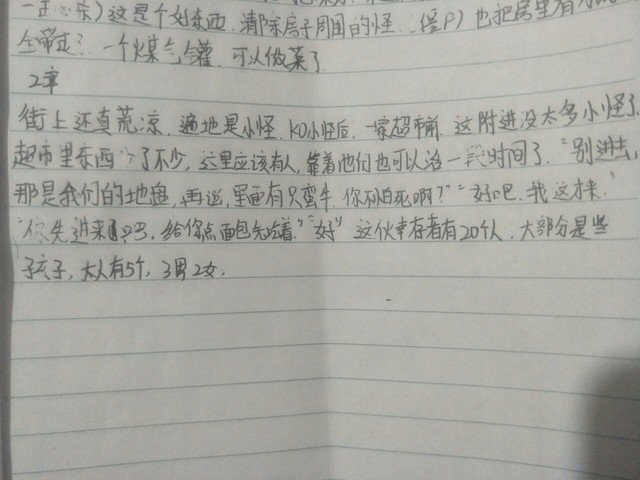 一击必杀）这是个好东西．清除房子周围的怪．
全带走？．一个煤气罐．可以做菜了．
2章
街上还真荒凉．遍地是小怪．KO小怪后．一家超市前．这附进没太多小怪了．
超市里东西少了不少，这里应该有人，靠着他们也可以活一段时间了．“别进去，
那是我们的地盘，再说，里面有只蛮牛．你不怕死啊？”“好吧．我这才来．”
“你先进来吧．给你点面包先吃着．”“好”这伙幸存者有20个人．大部分是些
孩子，大人有5个，3男2女．